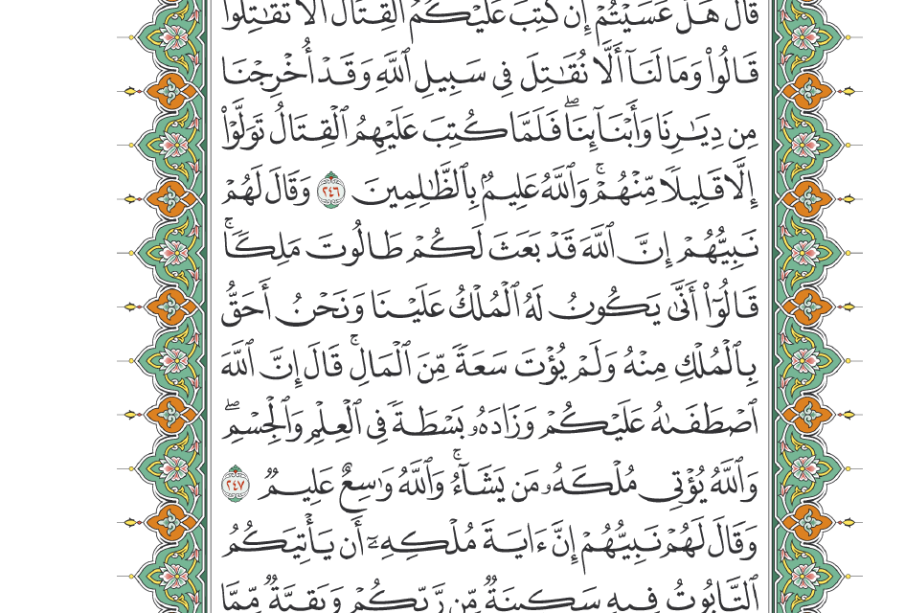 قَالَ هَلْ عَسَيْتُمْ إِن كُتِبَ عَلَيْكُمُ ٱلْقِتَالُ أَلَّا تُقَـٰتِلُوا۟
قَالُوا۟ وَمَا لَنَآ أَلَّا نُقَـٰتِلَ فِى سَبِيلِ ٱللَّهِ وَقَدْ أُخْرِجْنَا
مِن دِيَـٰرِنَا وَأَبْنَآئِنَا ۖ فَلَمَّا كُتِبَ عَلَيْهِمُ ٱلْقِتَالُ تَوَلَّوْا۟
إِلَّا قَلِيلًا مِّنْهُمْ ۗ وَٱللَّهُ عَلِيمٌۢ بِٱلظَّـٰلِمِينَ ٢٤٦ وَقَالَ لَهُمْ
نَبِيُّهُمْ إِنَّ ٱللَّهَ قَدْ بَعَثَ لَكُمْ طَالُوتَ مَلِكًا ۚ
قَالُوٓا۟ أَنَّىٰ يَكُونُ لَهُ ٱلْمُلْكُ عَلَيْنَا وَنَحْنُ أَحَقُّ
بِٱلْمُلْكِ مِنْهُ وَلَمْ يُؤْتَ سَعَةً مِّنَ ٱلْمَالِ ۚ قَالَ إِنَّ ٱللَّهَ
ٱصْطَفَىٰهُ عَلَيْكُمْ وَزَادَهُۥ بَسْطَةً فِى ٱلْعِلْمِ وَٱلْجِسْمِ ۖ
وَٱللَّهُ يُؤْتِى مُلْكَهُۥ مَن يَشَآءُ ۚ وَٱللَّهُ وَٰسِعٌ عَلِيمٌ ٢٤٧
وَقَالَ لَهُمْ نَبِيُّهُمْ إِنَّ ءَايَةَ مُلْكِهِۦٓ أَن يَأْتِيَكُمُ
ٱلتَّابُوتُ فِيهِ سَكِينَةٌ مِّن رَّبِّكُمْ وَبَقِيَّةٌ مِّمَّا